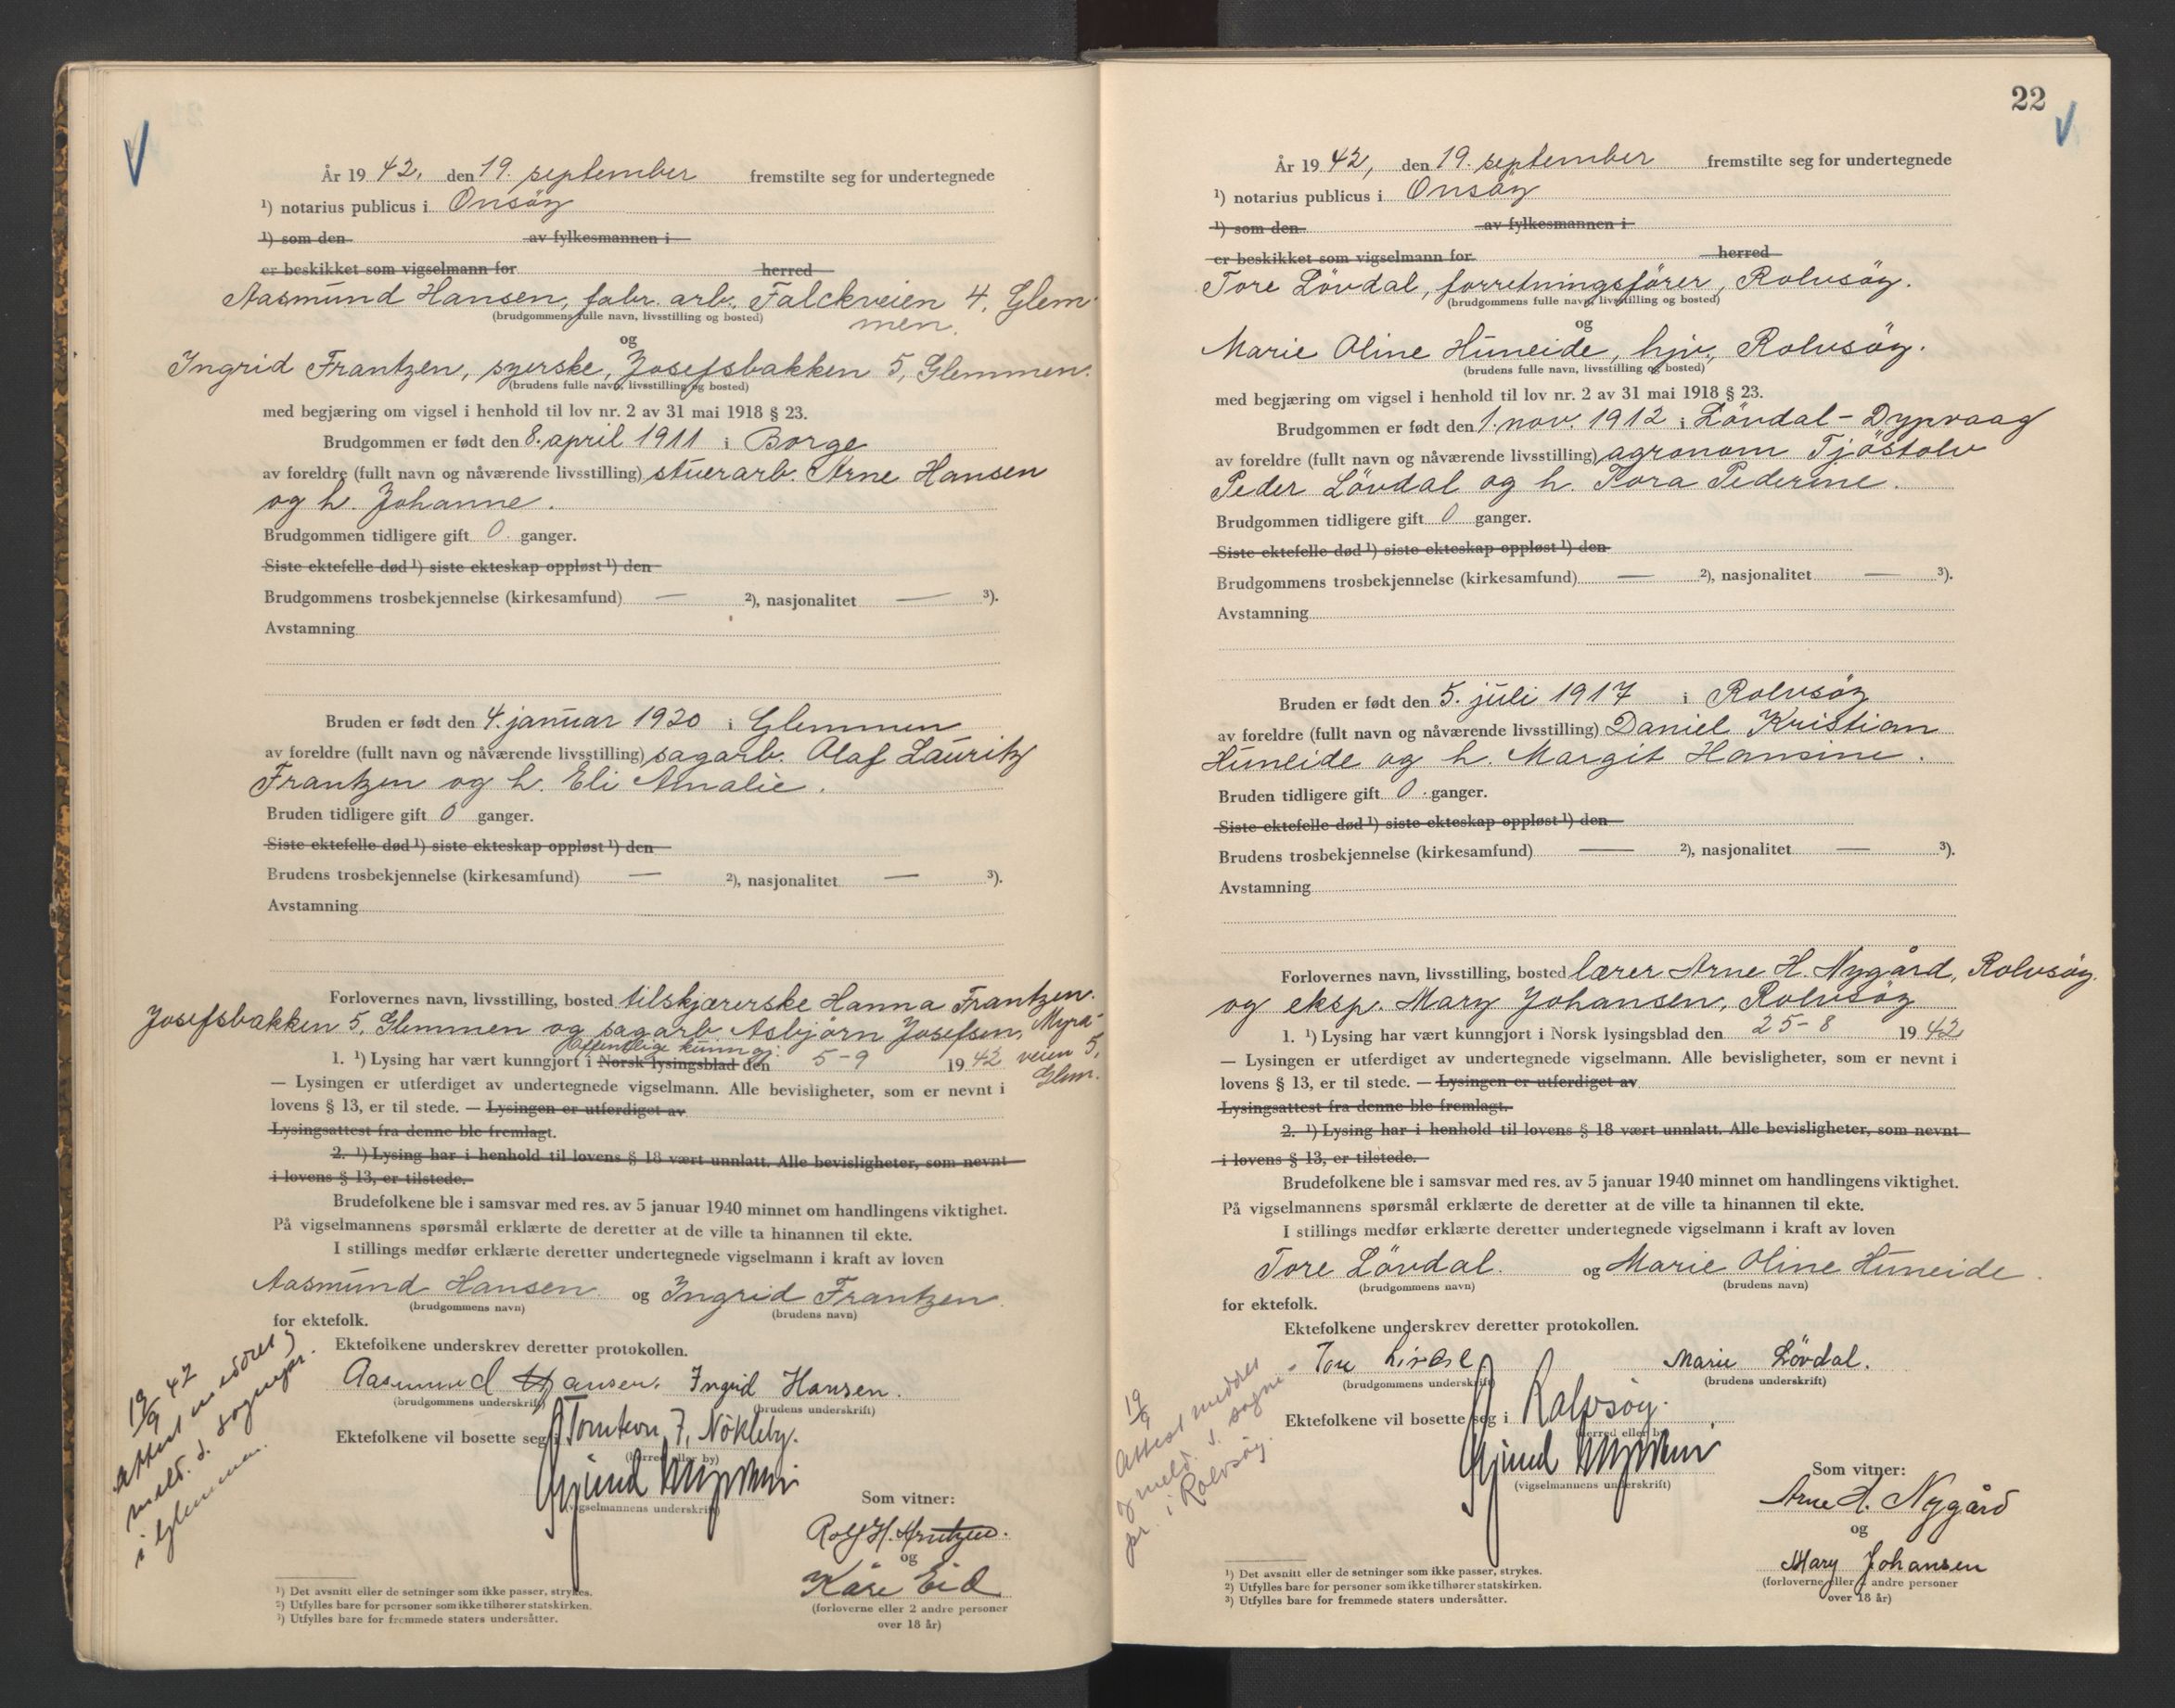 År 1942, den 19. september fremstilte seg for undertegnede
¹) notarius publicus i Onsöy
¹) som den av fylkesmannen i
er beskikket som vigselmann for herred
Aasmund Hansen, fabr. arb. Falckveien 4, Glem-
(brudgommens fulle navn, livsstilling og bosted)
men.
og
Ingrid Frantzen, syerske, Josefsbakken 5, Glemmen.
(brudens fulle navn, livsstilling og bosted)
med begjæring om vigsel i henhold til lov nr. 2 av 31 mai 1918 § 23.
Brudgommen er født den 8. april 1911 i Borge
av foreldre (fullt navn og nåværende livsstilling) stuerarb. Arne Hansen
og h. Johanne.
Brudgommen tidligere gift 0 ganger.
Siste ektefelle død ¹) siste ekteskap oppløst ¹) den
Brudgommens trosbekjennelse (kirkesamfund) — ²), nasjonalitet — ³).
Avstamning
Bruden er født den 4. januar 1920 i Glemmen
av foreldre (fullt navn og nåværende livsstilling) sagarb. Olaf Lauritz
Frantzen og h. Eli Amalie.
Bruden tidligere gift 0 ganger.
Siste ektefelle død ¹) siste ekteskap oppløst ¹) den
Brudens trosbekjennelse (kirkesamfund) — ²), nasjonalitet — ³).
Avstamning
Forlovernes navn, livsstilling, bosted tilskjærerske Hanna Frantzen.
Josefsbakken 5, Glemmen og sagarb. Asbjörn Josefsen, Myra-
veien 5,
Glem.
Offentlige kunngj.
1. ¹) Lysing har vært kunngjort i Norsk lysingsblad den 5-9 1942
— Lysingen er utferdiget av undertegnede vigselmann. Alle bevisligheter, som er nevnt i
lovens § 13, er til stede. — Lysingen er utferdiget av
Lysingsattest fra denne ble fremlagt.
2. ¹) Lysing har i henhold til lovens § 18 vært unnlatt. Alle bevisligheter, som nevnt
i lovens § 13, er tilstede.
Brudefolkene ble i samsvar med res. av 5 januar 1940 minnet om handlingens viktighet.
På vigselmannens spørsmål erklærte de deretter at de ville ta hinannen til ekte.
I stillings medfør erklærte deretter undertegnede vigselmann i kraft av loven
Aasmund Hansen og Ingrid Frantzen.
(brudgommens navn) (brudens navn)
for ektefolk.
Ektefolkene underskrev deretter protokollen.
Aasmund Hansen. Ingrid Hansen.
(brudgommens underskrift) (brudens underskrift)
Ektefolkene vil bosette seg i Nökleby.
(herred eller by)
(vigselmannens underskrift)
Som vitner:
Rolf H.
og
Kåre Eid
(forloverne eller 2 andre personer
over 18 år)
19/9 42
Attest
meld. s. sognepr.
i Glemmen.
¹) Det avsnitt eller de setninger som ikke passer, strykes.
²) Utfylles bare for personer som ikke tilhører statskirken.
³) Utfylles bare for fremmede staters undersåtter.
22
År 1942, den 19. september fremstilte seg for undertegnede
¹) notarius publicus i Onsöy
¹) som den av fylkesmannen i
er beskikket som vigselmann for herred
Tore Lövdal, forretningsförer, Rolvsöy.
(brudgommens fulle navn, livsstilling og bosted)
og
Marie Oline Huneide, hjv., Rolvsöy.
(brudens fulle navn, livsstilling og bosted)
med begjæring om vigsel i henhold til lov nr. 2 av 31 mai 1918 § 23.
Brudgommen er født den 1. nov. 1912 i Lövdal - Dypvaag
av foreldre (fullt navn og nåværende livsstilling) agronom Tjöstolv
Peder Lövdal og h. Tora Pederine.
Brudgommen tidligere gift 0 ganger.
Siste ektefelle død ¹) siste ekteskap oppløst ¹) den
Brudgommens trosbekjennelse (kirkesamfund) — ²), nasjonalitet — ³).
Avstamning
Bruden er født den 5. juli 1917 i Rolvsöy
av foreldre (fullt navn og nåværende livsstilling) Daniel Kristian
Huneide og h. Margit Hansine.
Bruden tidligere gift 0. ganger.
Siste ektefelle død ¹) siste ekteskap oppløst ¹) den
Brudens trosbekjennelse (kirkesamfund) — ²), nasjonalitet — ³).
Avstamning
Forlovernes navn, livsstilling, bosted lærer Arne H. Nygård, Rolvsöy.
og eksp. Mary Johansen, Rolvsöy
1. ¹) Lysing har vært kunngjort i Norsk lysingsblad den 25-8 1942
— Lysingen er utferdiget av undertegnede vigselmann. Alle bevisligheter, som er nevnt i
lovens § 13, er til stede. — Lysingen er utferdiget av
Lysingsattest fra denne ble fremlagt.
2. ¹) Lysing har i henhold til lovens § 18 vært unnlatt. Alle bevisligheter, som nevnt
i lovens § 13, er tilstede.
Brudefolkene ble i samsvar med res. av 5 januar 1940 minnet om handlingens viktighet.
På vigselmannens spørsmål erklærte de deretter at de ville ta hinannen til ekte.
I stillings medfør erklærte deretter undertegnede vigselmann i kraft av loven
Tore Lövdal. og Marie Oline Huneide.
(brudgommens navn) (brudens navn)
for ektefolk.
Ektefolkene underskrev deretter protokollen.
Tore Lövdal Marie Lövdal.
(brudgommens underskrift) (brudens underskrift)
Ektefolkene vil bosette seg i Rolvsöy.
(herred eller by)
(vigselmannens underskrift)
Som vitner:
Arne H. Nygård
og
Mary Johansen
(forloverne eller 2 andre personer
over 18 år)
19/9
Attest meddelt
og meld. s. sogne-
pr. i Rolvsöy.
¹) Det avsnitt eller de setninger som ikke passer, strykes.
²) Utfylles bare for personer som ikke tilhører statskirken.
³) Utfylles bare for fremmede staters undersåtter.